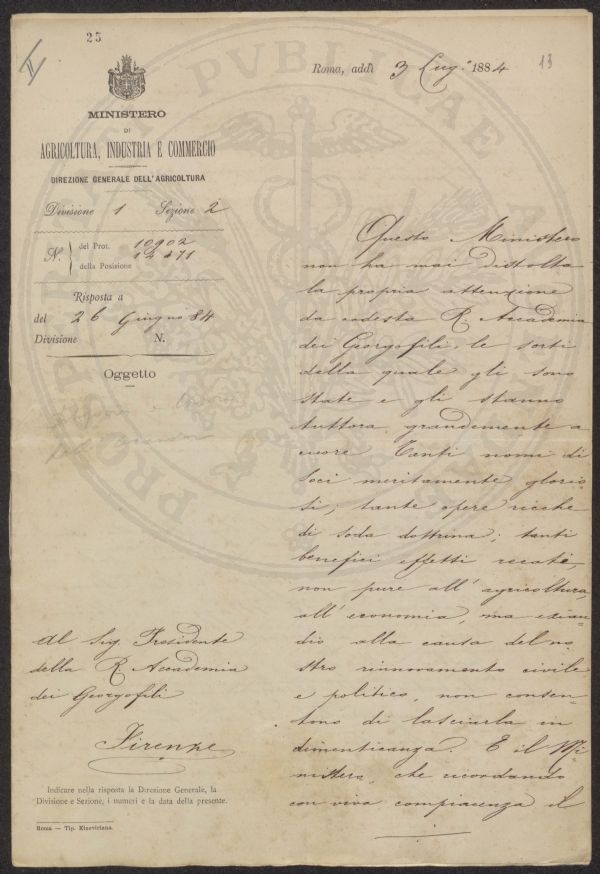 25
13
Roma, addì 3 Lug.º 1884
MINISTERO
DI
AGRICOLTURA, INDUSTRIA E COMMERCIO
DIREZIONE GENERALE DELL'AGRICOLTURA
Divisione 1 Sezione 2
N. del Prot. 10902
della Posizione 12471
Risposta a
del 26 Giugno 84
Divisione N.
Oggetto
Al Sig. Presidente
della R. Accademia
dei Georgofili
Firenze
Indicare nella risposta la Direzione Generale, la
Divisione e Sezione, i numeri e la data della presente.
Roma — Tip. Elzeviriana.
Questo Ministero
non ha mai distolta
la propria attenzione
da codesta R. Accademia
dei Georgofili, le sorti
della quale gli sono
state e gli stanno
tuttora grandemente a
cuore. Tanti nomi di
soci meritamente glorio-
si; tante opere ricche
di soda dottrina; tanti
benefici effetti recati,
non pure all'agricoltura,
all'economia, ma ezian-
dio alla causa del no-
stro rinnovamento civile
e politico, non consen-
tono di lasciarla in
dimenticanza. E il Mi-
nistero, che ricordando
con viva compiacenza il
PROSPERITATI PVBLICAE